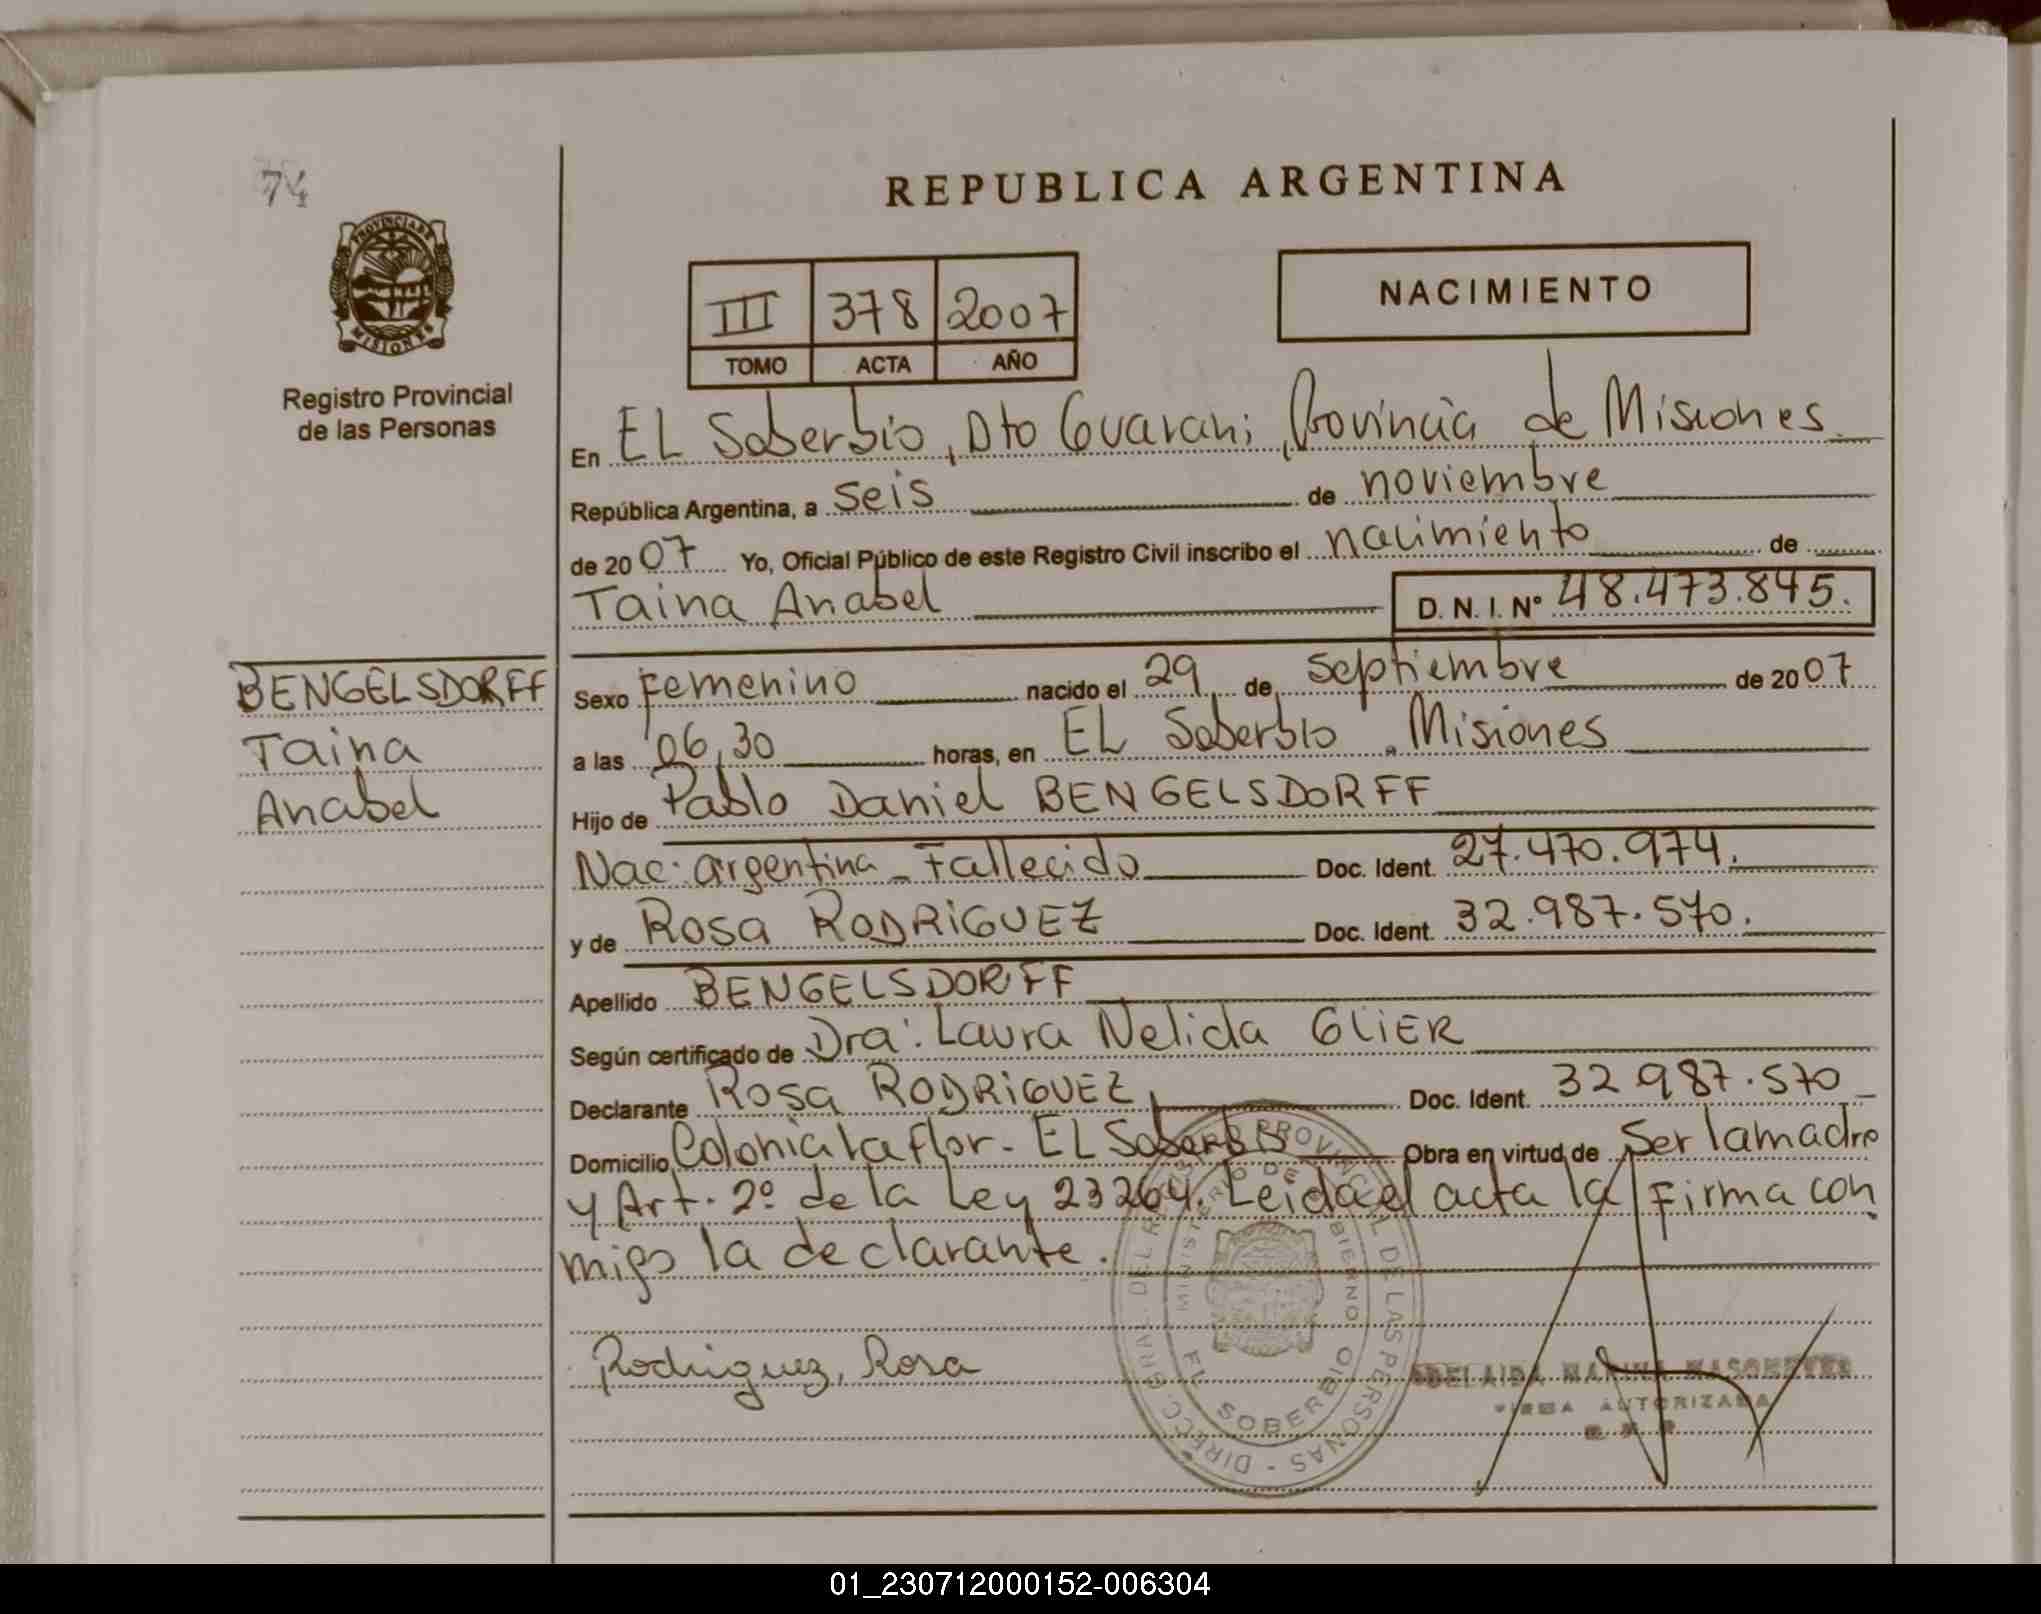 74
REPUBLICA ARGENTINA
PROVINCIA DE
MISIONES
Registro Provincial
de las Personas
III 378 2007
TOMO ACTA AÑO
NACIMIENTO
En EL Soberbio, Dto Guarani, Provincia de Misiones
República Argentina, a seis de noviembre
de 2007 Yo, Oficial Público de este Registro Civil inscribo el nacimiento de
Taina Anabel D. N. I. Nº 48.473.845.
BENGELSDORFF
Taina
Anabel
Sexo Femenino nacido el 29 de Septiembre de 2007
a las 06,30 horas, en EL Soberbio . Misiones
Hijo de Pablo Daniel BENGELSDORFF
Nac. argentina - Fallecido Doc. Ident. 27.470.974.
y de Rosa RODRIGUEZ Doc. Ident. 32.987.570.
Apellido BENGELSDORFF
Según certificado de Dra. Laura Nelida GLIER
Declarante Rosa RODRIGUEZ, Doc. Ident. 32 987.570
Domicilio Colonia La flor - EL Soberbio Obra en virtud de Ser la madre
y Art. 2º de la Ley 23264. Leida el acta la firma con
migo la declarante.
Rodriguez, Rosa
DIRECC. GRAL. DEL REGISTRO PROVINCIAL DE LAS PERSONAS
MINISTERIO DE GOBIERNO
EL SOBERBIO
ADELAIDA MARINA
FIRMA AUTORIZADA
01_230712000152-006304